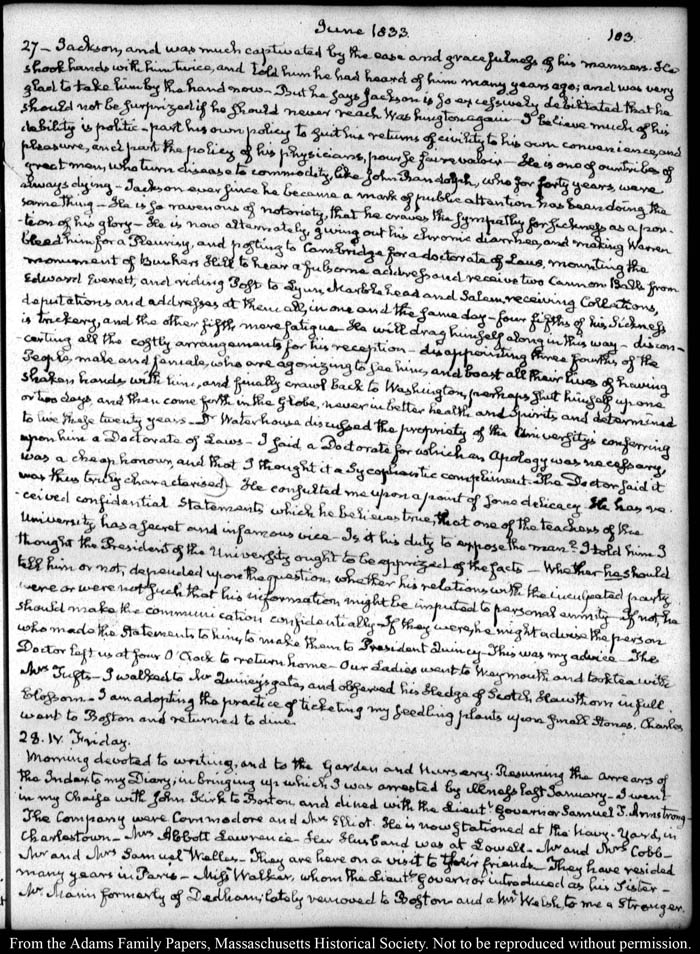 June 1833.
183.
27 - Jackson, and was much captivated by the ease and gracefulness of his manners. He
shook hands with him twice, and told him he had heard of him many years ago; and was very
glad to take him by the hand now - But he says Jackson is so excessively debilitated that he
should not be surprized if he should never reach Washington again - I believe much of his
debility is politic - part his own policy to suit his returns of civility to his own convenience, and
pleasure, and part the policy of his physicians, pour se faire valoir - He is one of our tribes of
great men, who turn disease to commodity, like John Randolph, who for forty years, were
always dying - Jackson ever since he became a mark of public attention has been doing the
same thing - He is so ravenous of notoriety, that he craves the sympathy for sickness as a por-
-tion of his glory - He is now alternately giving out his chronic diarrhœa, and making Warren
bleed him for a Pleurisy, and posting to Cambridge for a doctorate of Laws, mounting the
monument of Bunkers Hill to hear a fulsome address and receive two Cannon Balls from
Edward Everett, and riding Post to Lynn, Marblehead and Salem, receiving Collations,
deputations and addresses at them all, in one and the same day - four fifths of his Sickness
is trickery, and the other fifth, mere fatigue - He will drag himself along in this way - discon-
certing all the costly arrangements for his reception - disappointing three fourths of the
People, male and female, who are agonizing to see him, and boast all their lives of having
shaken hands with him, and finally crawl back to Washington, perhaps shut himself up one
or two days, and then come forth in the Globe, never in better health and spirits and determined
to live these twenty years - Dr Waterhouse discussed the propriety of the University's conferring
upon him a Doctorate of Laws - I said a Doctorate for which an Apology was necessary,
was a cheap honour, and that I thought it a Sycophantic compliment - The Doctor said it
was thus truly characterised) He consulted me upon a point of some delicacy. He has re-
-ceived confidential Statements which he believes true, that one of the teachers of the
University has a secret and infamous vice - Is it his duty to expose the man? I told him I
thought the President of the University ought to be apprized of the facts - Whether he should
tell him or not, depended upon the question, whether his relations with the inculpated party
were or were not such that his information, might be imputed to personal enmity - If not, he
should make the communication confidentially - If they were, he might advise the person
who made the Statements to him, to make them to President Quincy - This was my advice - The
Doctor left us at four O'Clock to return home - Our Ladies went to Weymouth and took tea with
Mrs Tufts - I walked to Mr Quincy's gate, and observed his Hedge of Scotch Hawthorn in full
blossom - I am adopting the practice of ticketing my seedling plants upon small stones. Charles
went to Boston and returned to dine.
28. IV. Friday.
Morning devoted to writing, and to the Garden and Nursery. Resuming the arrears of
the Index to my Diary, in bringing up which, I was arrested by illness last January - I went
in my Chaise with John Kirk to Boston, and dined with the Lieutt Governor Samuel T. Armstrong -
The Company were Commodore and Mrs Elliot. He is now stationed at the Navy-Yard, in
Charlestown - Mrs Abbott Lawrence - Her Husband was at Lowell - Mr and Mrs Cobb -
Mr and Mrs Samuel Welles - They are here on a visit to their friends - They have resided
many years in Paris - Miss Walker, whom the Lieutt Governor introduced as his Sister -
Mr Mann formerly of Dedham, lately removed to Boston and a Mr Welsh, to me a Stranger.
From the Adams Family Papers, Massachusetts Historical Society. Not to be reproduced without permission.